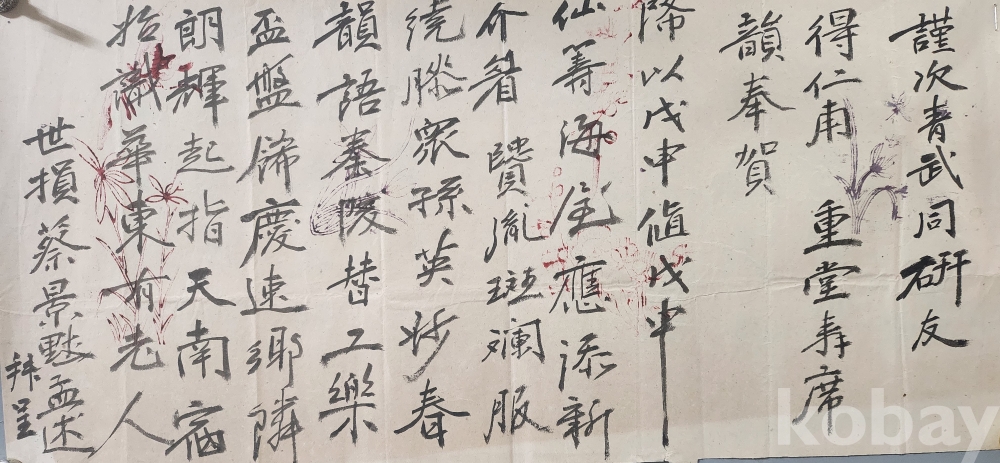 謹次青武同硏友
得仁甫 重堂壽席
韻奉賀
降以戊申値戊申
仙籌海屋應添新
介眉 賢胤斑斕服
繞膝衆孫英妙春
韻語陵替工樂
盃盤餙慶速鄕隣
朗輝起指天南宿
始識華東有老人
世損蔡景魁孟述
拜呈
kobay